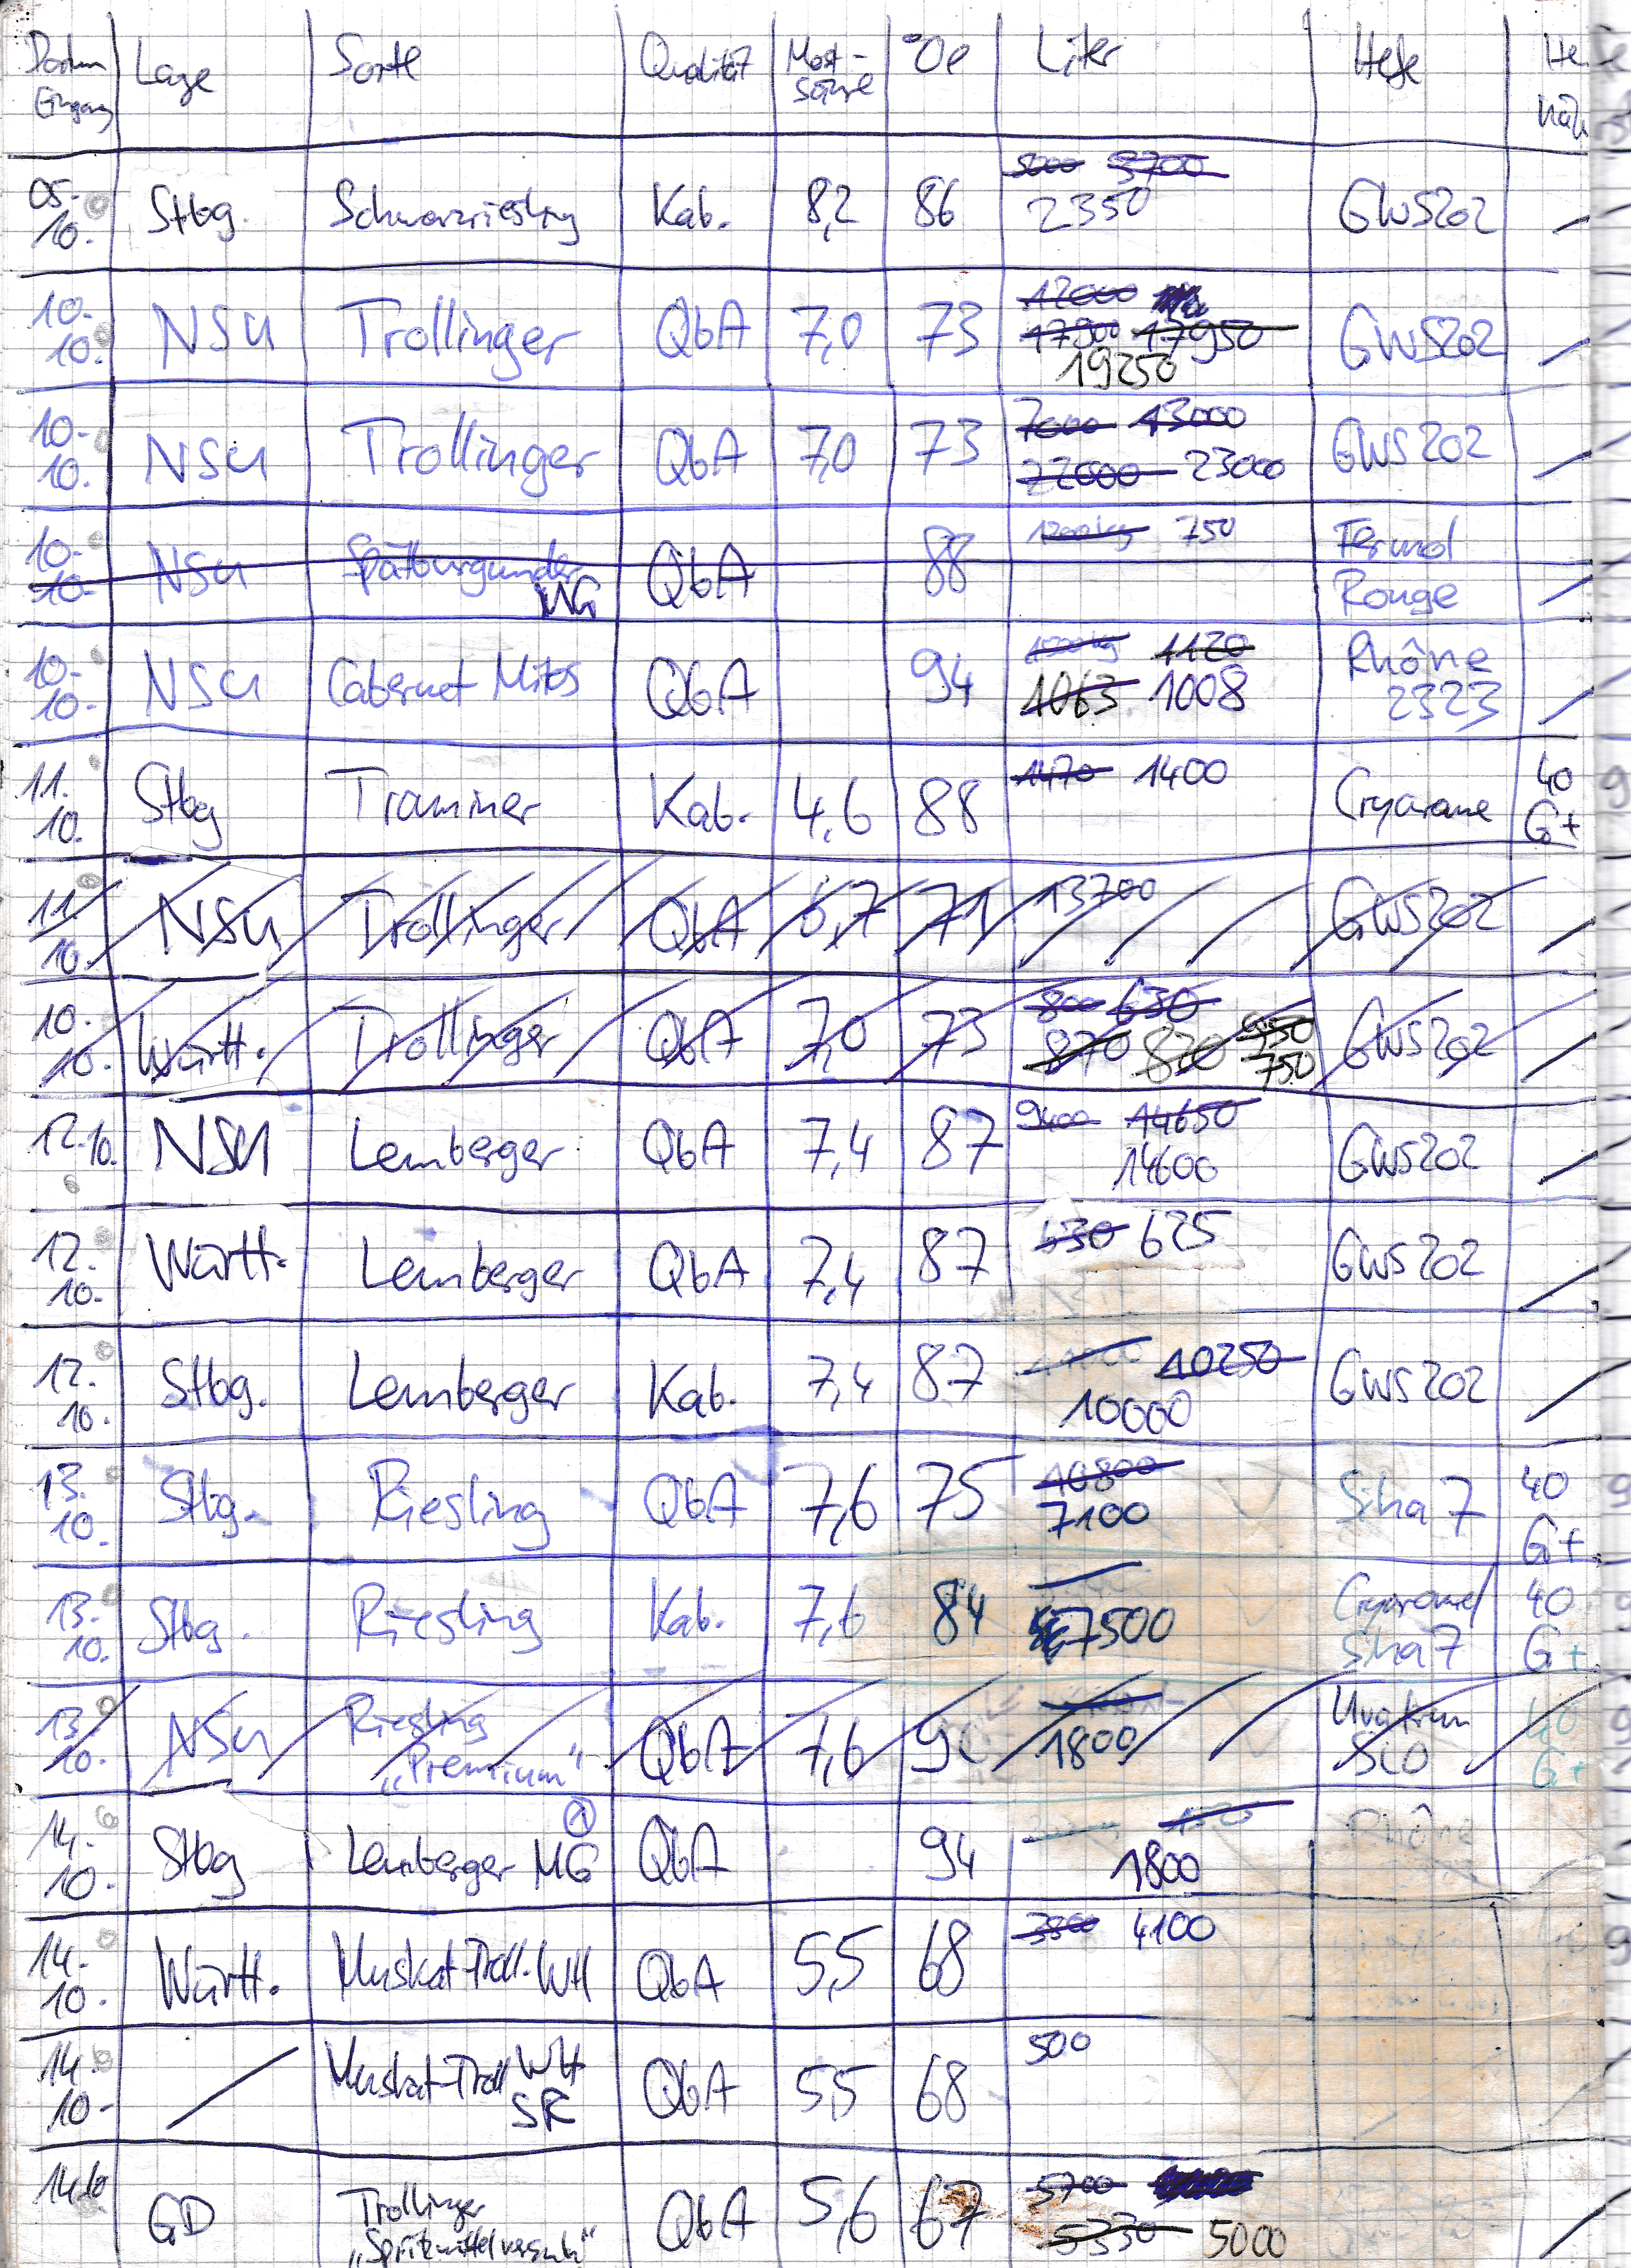 Datum Eingang Lage Sorte Qualität Most-säure °Oe Liter Hefe
05.10. Stbg. Schwarzriesling Kab. 8,2 86 5000 3700 2350 GWS202 /
10.10. NSU Trollinger QbA 7,0 73 12000 17500 17950 19250 GWS202 /
10.10. NSU Trollinger QbA 7,0 73 7000 13000 22000 23000 GWS202 /
10.10. NSU Spätburgunder MG QbA 88 1200kg 750 Fermol Rouge /
10.10. NSU Cabernet Mitos QbA 94 1120 1063 1008 Rhône 2323 /
11.10. Stbg Traminer Kab. 4,6 88 1470 1400 Cryarome 40 G+
11.10. NSU Trollinger QbA 6,7 71 13700 GWS202 /
10.10. Württ. Trollinger QbA 7,0 73 800 630 870 820 750 GWS202 /
12.10. NSU Lemberger QbA 7,4 87 9400 14650 14600 GWS202 /
12.10. Württ. Lemberger QbA 7,4 87 630 625 GWS202 /
12.10. Stbg. Lemberger Kab. 7,4 87 10250 10000 GWS202 /
13.10. Stbg. Riesling QbA 7,6 75 10800 7100 Siha 7 40 G+
13.10. Stbg. Riesling Kab. 7,6 84 7500 Cryarome/ Siha 7 40 G+
13.10. NSU Riesling „Premium“ QbA 7,6 90 1800 Uvaferm SLO 40 G+
14.10. Stbg Lemberger MG QbA 94 1800 Rhône
14.10. Württ. Muskat-Troll. WH QbA 5,5 68 3800 4100
14.10. / Muskat-Troll WH SR QbA 5,5 68 500
14.10 GD Trollinger „Spritzmittelversuch“ QbA 5,6 67 5700 5330 5000 /